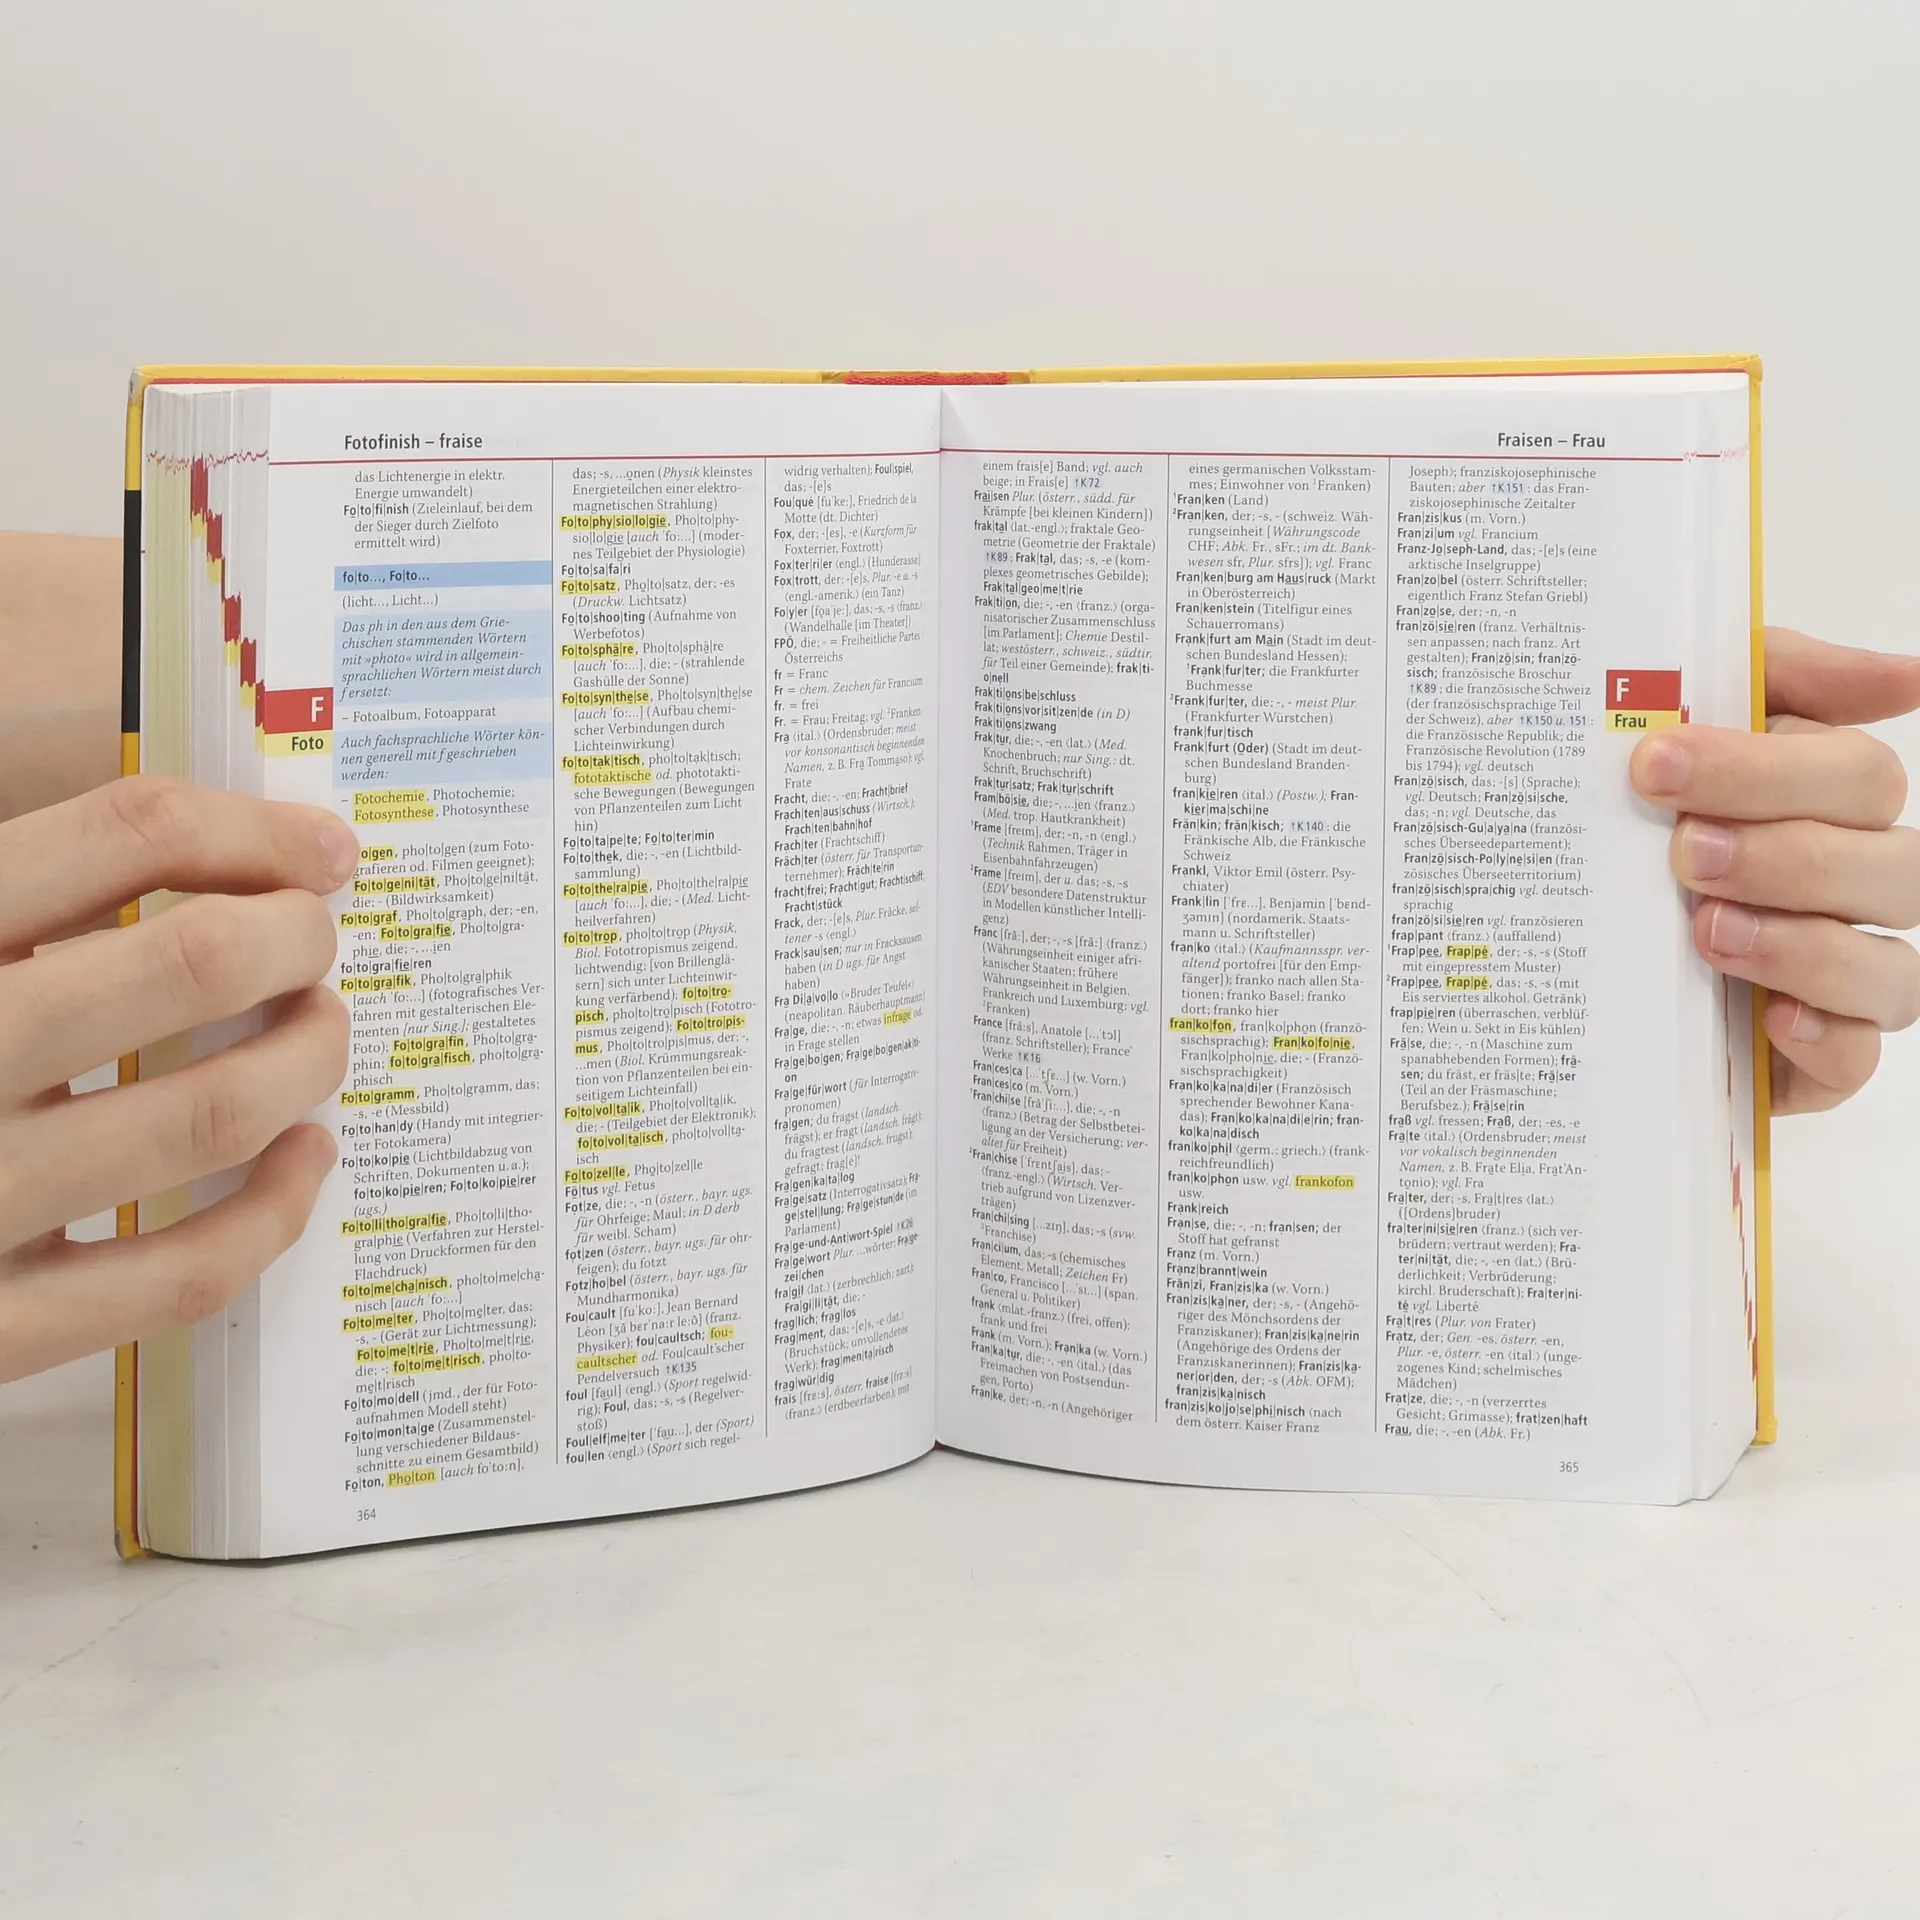 Fotofinish – fraise
das Lichtenergie in elektr.
Energie umwandelt)
Fo|to|fi|nish (Zieleinlauf, bei dem
der Sieger durch Zielfoto
ermittelt wird)
fo|to..., Fo|to...
(licht..., Licht...)
Das ph in den aus dem Grie-
chischen stammenden Wörtern
mit »photo« wird in allgemein-
sprachlichen Wörtern meist durch
f ersetzt:
– Fotoalbum, Fotoapparat
Auch fachsprachliche Wörter kön-
nen generell mit f geschrieben
werden:
– Fotochemie, Photochemie;
Fotosynthese, Photosynthese
o|gen, pho|to|gen (zum Foto-
grafieren od. Filmen geeignet);
Fo|to|ge|ni|tät, Pho|to|ge|ni|tät,
die; - (Bildwirksamkeit)
Fo|to|graf, Pho|to|graph, der; -en,
-en; Fo|to|gra|fie, Pho|to|gra-
phie, die; -, ...ien
fo|to|gra|fie|ren
Fo|to|gra|fik, Pho|to|gra|phik
[auch ˈfoː...] (fotografisches Ver-
fahren mit gestalterischen Ele-
menten [nur Sing.]; gestaltetes
Foto); Fo|to|gra|fin, Pho|to|gra-
phin; fo|to|gra|fisch, pho|to|gra-
phisch
Fo|to|gramm, Pho|to|gramm, das;
-s, -e (Messbild)
Fo|to|han|dy (Handy mit integrier-
ter Fotokamera)
Fo|to|ko|pie (Lichtbildabzug von
Schriften, Dokumenten u. a.);
fo|to|ko|pie|ren; Fo|to|ko|pie|rer
(ugs.)
Fo|to|li|tho|gra|fie, Pho|to|li|tho-
gra|phie (Verfahren zur Herstel-
lung von Druckformen für den
Flachdruck)
fo|to|me|cha|nisch, pho|to|me|cha-
nisch [auch ˈfoː...]
Fo|to|me|ter, Pho|to|me|ter, das;
-s, - (Gerät zur Lichtmessung);
Fo|to|me|t|rie, Pho|to|me|t|rie,
die; -; fo|to|me|t|risch, pho|to-
me|t|risch
Fo|to|mo|dell (jmd., der für Foto-
aufnahmen Modell steht)
Fo|to|mon|ta|ge (Zusammenstel-
lung verschiedener Bildaus-
schnitte zu einem Gesamtbild)
Fo|ton, Pho|ton [auch foˈtoːn],
das; -s, ...onen (Physik kleinstes
Energieteilchen einer elektro-
magnetischen Strahlung)
Fo|to|phy|sio|lo|gie, Pho|to|phy-
sio|lo|gie [auch ˈfoː...] (moder-
nes Teilgebiet der Physiologie)
Fo|to|sa|fa|ri
Fo|to|satz, Pho|to|satz, der; -es
(Druckw. Lichtsatz)
Fo|to|shoo|ting (Aufnahme von
Werbefotos)
Fo|to|sphä|re, Pho|to|sphä|re
[auch ˈfoː...], die; - (strahlende
Gashülle der Sonne)
Fo|to|syn|the|se, Pho|to|syn|the|se
[auch ˈfoː...] (Aufbau chemi-
scher Verbindungen durch
Lichteinwirkung)
fo|to|tak|tisch, pho|to|tak|tisch;
fototaktische od. phototakti-
sche Bewegungen (Bewegungen
von Pflanzenteilen zum Licht
hin)
Fo|to|ta|pe|te; Fo|to|ter|min
Fo|to|thek, die; -, -en (Lichtbild-
sammlung)
Fo|to|the|ra|pie, Pho|to|the|ra|pie
[auch ˈfoː...], die; - (Med. Licht-
heilverfahren)
fo|to|trop, pho|to|trop (Physik,
Biol. Fototropismus zeigend,
lichtwendig; [von Brillenglä-
sern] sich unter Lichteinwir-
kung verfärbend); fo|to|tro-
pisch, pho|to|tro|pisch (Fototro-
pismus zeigend); Fo|to|tro|pis-
mus, Pho|to|tro|pis|mus, der; -,
...men (Biol. Krümmungsreak-
tion von Pflanzenteilen bei ein-
seitigem Lichteinfall)
Fo|to|vol|ta|ik, Pho|to|vol|ta|ik,
die; - (Teilgebiet der Elektronik);
fo|to|vol|ta|isch, pho|to|vol|ta-
isch
Fo|to|zel|le, Pho|to|zel|le
Fö|tus vgl. Fetus
Fot|ze, die; -, -n (österr., bayr. ugs.
für Ohrfeige; Maul; in D derb
für weibl. Scham)
fot|zen (österr., bayr. ugs. für ohr-
feigen); du fotzt
Fotz|ho|bel (österr., bayr. ugs. für
Mundharmonika)
Fou|cault [fuˈkoː], Jean Bernard
Léon (franz.
Physiker); fou|caultsch; fou-
caultscher od. Fou|cault'scher
Pendelversuch ↑K135
foul [faul] (engl.) (Sport regelwid-
rig); Foul, das; -s, -s (Regelver-
stoß)
Foul|elf|me|ter [ˈfau...], der (Sport)
fou|len (engl.) (Sport sich regel-
widrig verhalten); Foul|spiel,
das; -[e]s
Fou|qué [fuˈkeː], Friedrich de la
Motte (dt. Dichter)
Fox, der; -[es], -e (Kurzform für
Foxterrier, Foxtrott)
Fox|ter|ri|er (engl.) (Hunderasse)
Fox|trott, der; -[e]s, Plur. -e u. -s
(engl.-amerik.) (ein Tanz)
Fo|y|er [foaˈjeː], das; -s, -s (franz.)
(Wandelhalle [im Theater])
FPÖ, die; - = Freiheitliche Partei
Österreichs
fr = Franc
Fr = chem. Zeichen für Francium
fr. = frei
Fr. = Frau; Freitag; vgl. ²Franken
Fra (ital.) (Ordensbruder; meist
vor konsonantisch beginnenden
Namen, z. B. Fra Tommaso); vgl.
Frate
Fracht, die; -, -en; Fracht|brief
Frach|ten|aus|schuss (Wirtsch.);
Frach|ten|bahn|hof
Frach|ter (Frachtschiff)
Fräch|ter (österr. für Transportun-
ternehmer); Fräch|te|rin
fracht|frei; Fracht|gut; Fracht|schiff;
Fracht|stück
Frack, der; -[e]s, Plur. Fräcke, sel-
tener -s (engl.)
Frack|sau|sen; nur in Fracksausen
haben (in D ugs. für Angst
haben)
Fra Di|a|vo|lo (»Bruder Teufel«)
(neapolitan. Räuberhauptmann)
Fra|ge, die; -, -n; etwas infrage od.
in Frage stellen
Fra|ge|bo|gen; Fra|ge|bo|gen|ak|ti-
on
Fra|ge|für|wort (für Interrogativ-
pronomen)
fra|gen; du fragst (landsch.
frägst); er fragt (landsch. frägt);
du fragtest (landsch. frugst);
gefragt; frag[e]!
Fra|gen|ka|ta|log
Fra|ge|satz (Interrogativsatz); Fra-
ge|stel|lung; Fra|ge|stun|de (im
Parlament)
Fra|ge-und-Ant|wort-Spiel ↑K26
Fra|ge|wort Plur. ...wörter; Fra|ge-
zei|chen
fra|gil (lat.) (zerbrechlich; zart);
Fra|gi|li|tät, die; -
frag|lich; frag|los
Frag|ment, das; -[e]s, -e (lat.)
(Bruchstück; unvollendetes
Werk); frag|men|ta|risch
frag|wür|dig
frais [frɛːs], österr. fraise [frɛːs]
(franz.) (erdbeerfarben); mit
F
Foto
364
Fraisen – Frau
einem frais[e] Band; vgl. auch
beige; in Frais[e] ↑K72
Frai|sen Plur. (österr., südd. für
Krämpfe [bei kleinen Kindern])
frak|tal (lat.-engl.); fraktale Geo-
metrie (Geometrie der Fraktale)
↑K89; Frak|tal, das; -s, -e (kom-
plexes geometrisches Gebilde);
Frak|tal|geo|me|t|rie
Frak|ti|on, die; -, -en (franz.) (orga-
nisatorischer Zusammenschluss
[im Parlament]; Chemie Destil-
lat; westösterr., schweiz., südtir.
für Teil einer Gemeinde); frak|ti-
o|nell
Frak|ti|ons|be|schluss
Frak|ti|ons|vor|sit|zen|de (in D)
Frak|ti|ons|zwang
Frak|tur, die; -, -en (lat.) (Med.
Knochenbruch; nur Sing.: dt.
Schrift, Bruchschrift)
Frak|tur|satz; Frak|tur|schrift
Fram|bö|sie, die; -, ...ien (franz.)
(Med. trop. Hautkrankheit)
¹Frame [freɪm], der; -n, -n (engl.)
(Technik Rahmen, Träger in
Eisenbahnfahrzeugen)
²Frame [freɪm], der u. das; -s, -s
(EDV besondere Datenstruktur
in Modellen künstlicher Intelli-
genz)
Franc [frãː], der; -, -s [frãː] (franz.)
(Währungseinheit einiger afri-
kanischer Staaten; frühere
Währungseinheit in Belgien,
Frankreich und Luxemburg; vgl.
²Franken)
France [frãːs], Anatole [...ˈtɔl]
(franz. Schriftsteller); France'
Werke ↑K16
Fran|ces|ca [...ˈtʃɛ...] (w. Vorn.)
Fran|ces|co (m. Vorn.)
¹Fran|chi|se [frãˈʃiː...], die; -, -n
(franz.) (Betrag der Selbstbetei-
ligung an der Versicherung; ver-
altet für Freiheit)
²Fran|chise [ˈfrɛntʃais], das; -
(franz.-engl.) (Wirtsch. Ver-
trieb aufgrund von Lizenzver-
trägen)
Fran|chi|sing [...zɪŋ], das; -s (svw.
²Franchise)
Fran|ci|um, das; -s (chemisches
Element, Metall; Zeichen Fr)
Fran|co, Francisco [...ˈsɪ...] (span.
General u. Politiker)
frank (mlat.-franz.) (frei, offen);
frank und frei
Frank (m. Vorn.); Fran|ka (w. Vorn.)
Fran|ka|tur, die; -, -en (ital.) (das
Freimachen von Postsendun-
gen, Porto)
Fran|ke, der; -n, -n (Angehöriger
eines germanischen Volksstam-
mes; Einwohner von ¹Franken)
¹Fran|ken (Land)
²Fran|ken, der; -s, - (schweiz. Wäh-
rungseinheit [Währungscode
CHF; Abk. Fr., sFr.; im dt. Bank-
wesen sfr, Plur. sfrs]); vgl. Franc
Fran|ken|burg am Haus|ruck (Markt
in Oberösterreich)
Fran|ken|stein (Titelfigur eines
Schauerromans)
Frank|furt am Main (Stadt im deut-
schen Bundesland Hessen);
¹Frank|fur|ter; die Frankfurter
Buchmesse
²Frank|fur|ter, die; -, - meist Plur.
(Frankfurter Würstchen)
frank|fur|tisch
Frank|furt (Oder) (Stadt im deut-
schen Bundesland Branden-
burg)
fran|kie|ren (ital.) (Postw.); Fran-
kier|ma|schi|ne
Frän|kin; frän|kisch; ↑K140: die
Fränkische Alb, die Fränkische
Schweiz
Frankl, Viktor Emil (österr. Psy-
chiater)
Frank|lin [ˈfrɛ...], Benjamin [ˈbend-
ʒəmɪn] (nordamerik. Staats-
mann u. Schriftsteller)
fran|ko (ital.) (Kaufmannsspr. ver-
altend portofrei [für den Emp-
fänger]); franko nach allen Sta-
tionen; franko Basel; franko
dort; franko hier
fran|ko|fon, fran|ko|phon (franzö-
sischsprachig); Fran|ko|fo|nie,
Fran|ko|pho|nie, die; - (Franzö-
sischsprachigkeit)
Fran|ko|ka|na|di|er (Französisch
sprechender Bewohner Kana-
das); Fran|ko|ka|na|di|e|rin; fran-
ko|ka|na|disch
fran|ko|phil (germ.; griech.) (frank-
reichfreundlich)
fran|ko|phon usw. vgl. frankofon
usw.
Frank|reich
Fran|se, die; -, -n; fran|sen; der
Stoff hat gefranst
Franz (m. Vorn.)
Franz|brannt|wein
Frän|zi, Fran|zis|ka (w. Vorn.)
Fran|zis|ka|ner, der; -s, - (Angehö-
riger des Mönchsordens der
Franziskaner); Fran|zis|ka|ne|rin
(Angehörige des Ordens der
Franziskanerinnen); Fran|zis|ka-
ner|or|den, der; -s (Abk. OFM);
fran|zis|ka|nisch
fran|zis|ko|jo|se|phi|nisch (nach
dem österr. Kaiser Franz
Joseph); franziskojosephinische
Bauten; aber ↑K151: das Fran-
ziskojosephinische Zeitalter
Fran|zis|kus (m. Vorn.)
Fran|zi|um vgl. Francium
Franz-Jo|seph-Land, das; -[e]s (eine
arktische Inselgruppe)
Fran|zo|bel (österr. Schriftsteller;
eigentlich Franz Stefan Griebl)
Fran|zo|se, der; -n, -n
fran|zö|sie|ren (franz. Verhältnis-
sen anpassen; nach franz. Art
gestalten); Fran|zö|sin; fran|zö-
sisch; französische Broschur
↑K89; die französische Schweiz
(der französischsprachige Teil
der Schweiz), aber ↑K150 u. 151:
die Französische Republik; die
Französische Revolution (1789
bis 1794); vgl. deutsch
Fran|zö|sisch, das; -[s] (Sprache);
vgl. Deutsch; Fran|zö|si|sche,
das; -n; vgl. Deutsche, das
Fran|zö|sisch-Gu|a|ya|na (französi-
sches Überseedepartement);
Fran|zö|sisch-Po|ly|ne|si|en (fran-
zösisches Überseeterritorium)
fran|zö|sisch|spra|chig vgl. deutsch-
sprachig
fran|zö|si|sie|ren vgl. französieren
frap|pant (franz.) (auffallend)
¹Frap|pee, Frap|pé, der; -s, -s (Stoff
mit eingepresstem Muster)
²Frap|pee, Frap|pé, das; -s, -s (mit
Eis serviertes alkohol. Getränk)
frap|pie|ren (überraschen, verblüf-
fen; Wein u. Sekt in Eis kühlen)
Frä|se, die; -, -n (Maschine zum
spanabhebenden Formen); frä-
sen; du fräst, er fräs|te; Frä|ser
(Teil an der Fräsmaschine;
Berufsbez.); Frä|se|rin
fraß vgl. fressen; Fraß, der; -es, -e
Fra|te (ital.) (Ordensbruder; meist
vor vokalisch beginnenden
Namen, z. B. Frate Elia, Frat'An-
tonio); vgl. Fra
Fra|ter, der; -s, Fra|t|res (lat.)
([Ordens]bruder)
fra|ter|ni|sie|ren (franz.) (sich ver-
brüdern; vertraut werden); Fra-
ter|ni|tät, die; -, -en (lat.) (Brü-
derlichkeit; Verbrüderung;
kirchl. Bruderschaft); Fra|ter|ni-
té vgl. Liberté
Fra|t|res (Plur. von Frater)
Fratz, der; Gen. -es, österr. -en,
Plur. -e, österr. -en (ital.) (unge-
zogenes Kind; schelmisches
Mädchen)
Frat|ze, die; -, -n (verzerrtes
Gesicht; Grimasse); frat|zen|haft
Frau, die; -, -en (Abk. Fr.)
F
Frau
365